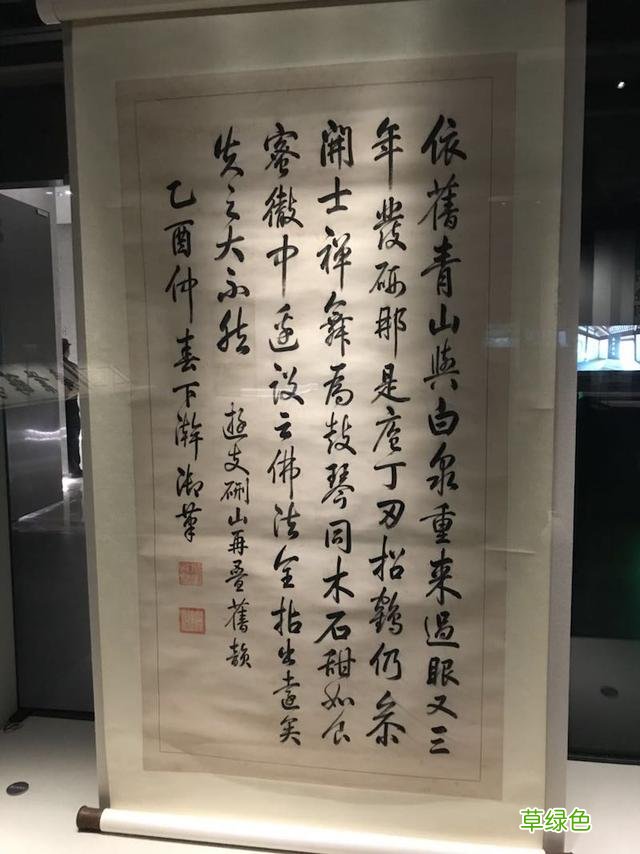 依舊青山與白泉重來過眼又三
年發硎那是庖丁刃招鶴仍參
開士禪舜為鼓琴同木石甜如食
蜜徹中邊設云佛法全拈出遠矣
失之大不然
遊支硎山再疊舊韻
乙酉仲春下澣御筆
草绿色